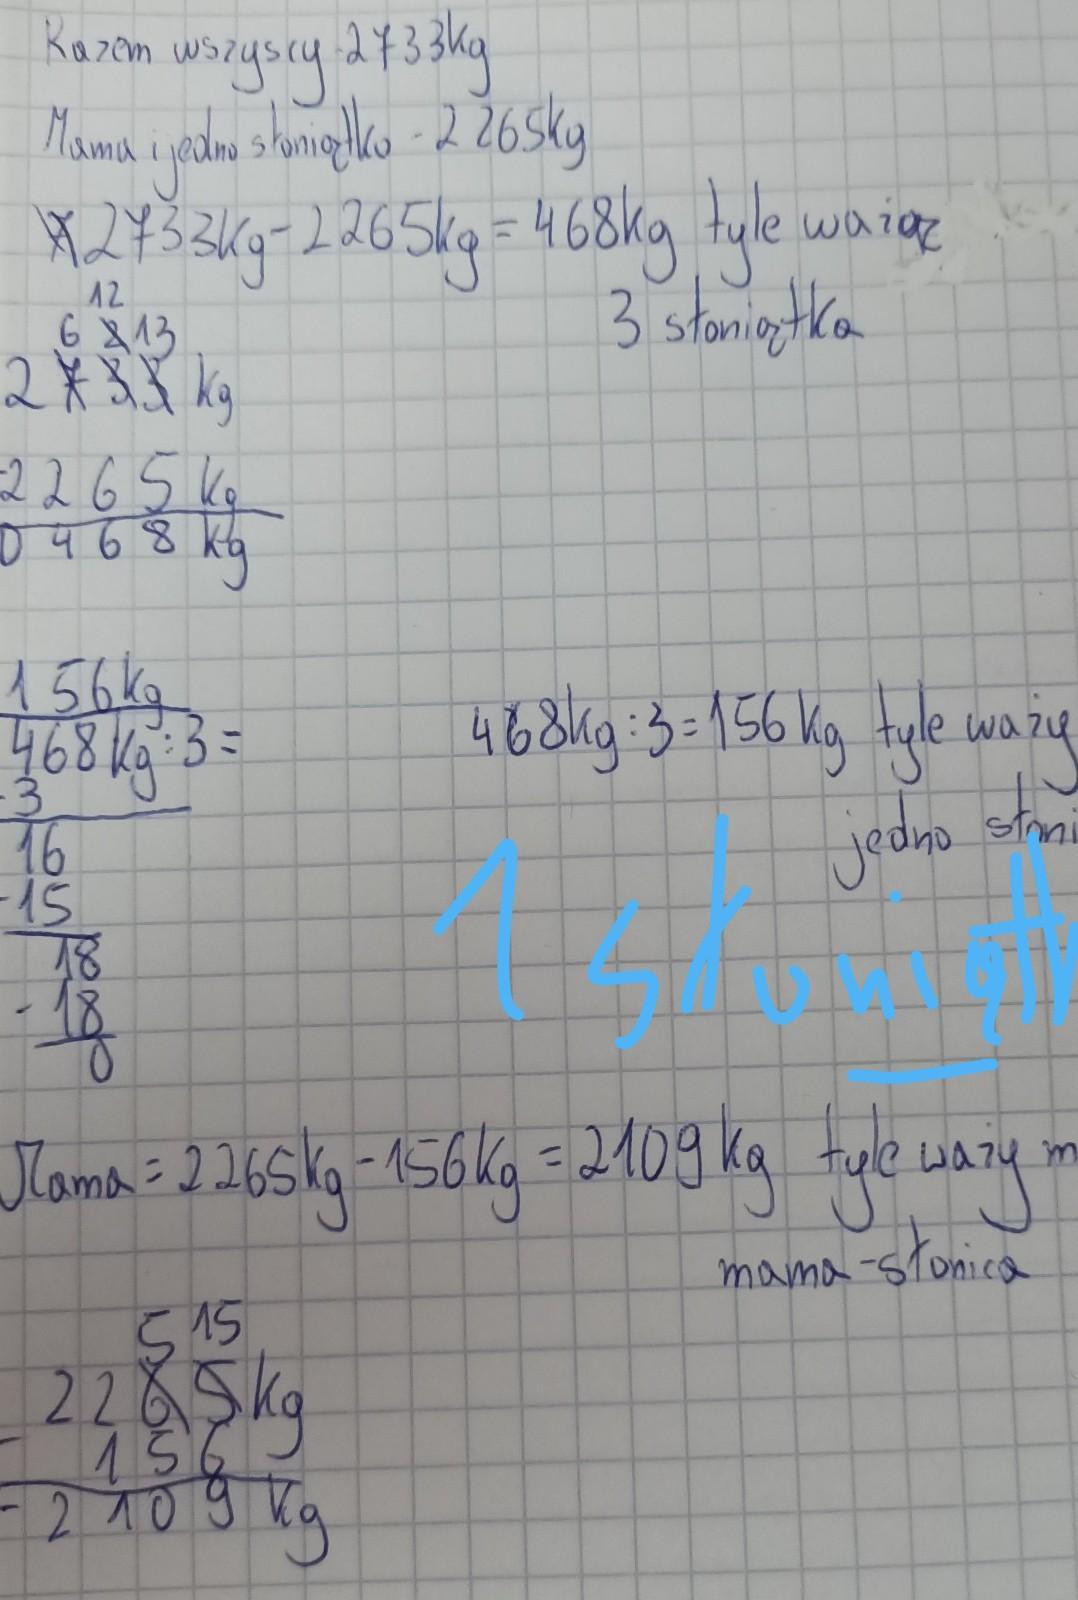 Razem wszyscy - 2733kg
Mama i jedno słoniątko - 2265kg
2733kg - 2265kg = 468kg tyle ważą
3 słoniątka
12
6 2 13
2733 kg
- 2265 kg
0468 kg
156kg
468kg:3=
- 3
16
- 15
18
- 18
0
468kg:3=156kg tyle waży
jedno słoni
1 słoniątk
Mama = 2265kg - 156kg = 2109kg tyle waży m
mama - słonica
5 15
2265kg
- 156
= 2109 kg